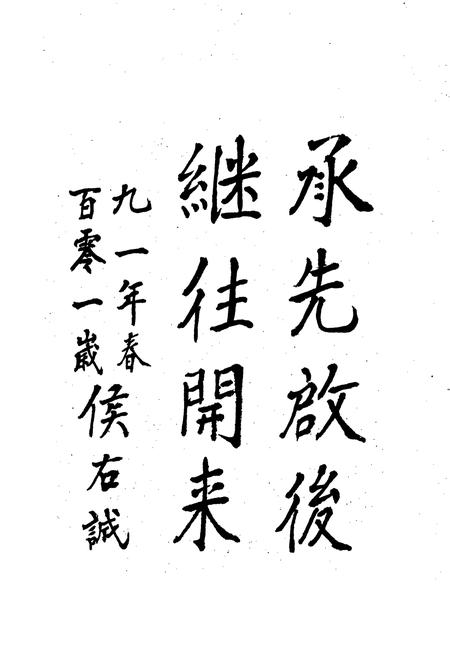 承先啟後
継往開来
九一年春
百零一嵗
侯右誠